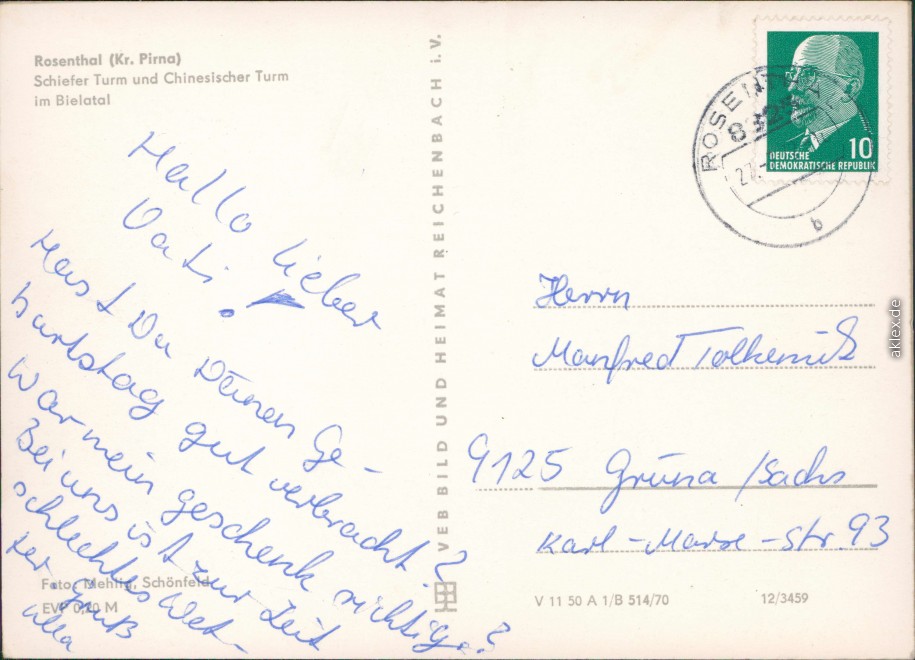 Rosenthal (Kr. Pirna)
Schiefer Turm und Chinesischer Turm
im Bielatal
Hallo lieber
Vati!
Hast Du Deinen Ge-
burtstag gut verbracht?
War mein geschenk richtig?
Bei uns ist zur Zeit
schlechtes Wet-
ter. Gruß
Ulla
Foto: Mehlig, Schönfeld
EVP 0,20 M
VEB BILD UND HEIMAT REICHENBACH i. V.
ROSENTHAL
832
27.
b
10
DEUTSCHE
DEMOKRATISCHE REPUBLIK
Herrn
Manfred Tolkemit
9125 Grüna /Sachs
Karl-Marx-Str. 93
V 11 50 A 1/B 514/70
12/3459
aklex.de